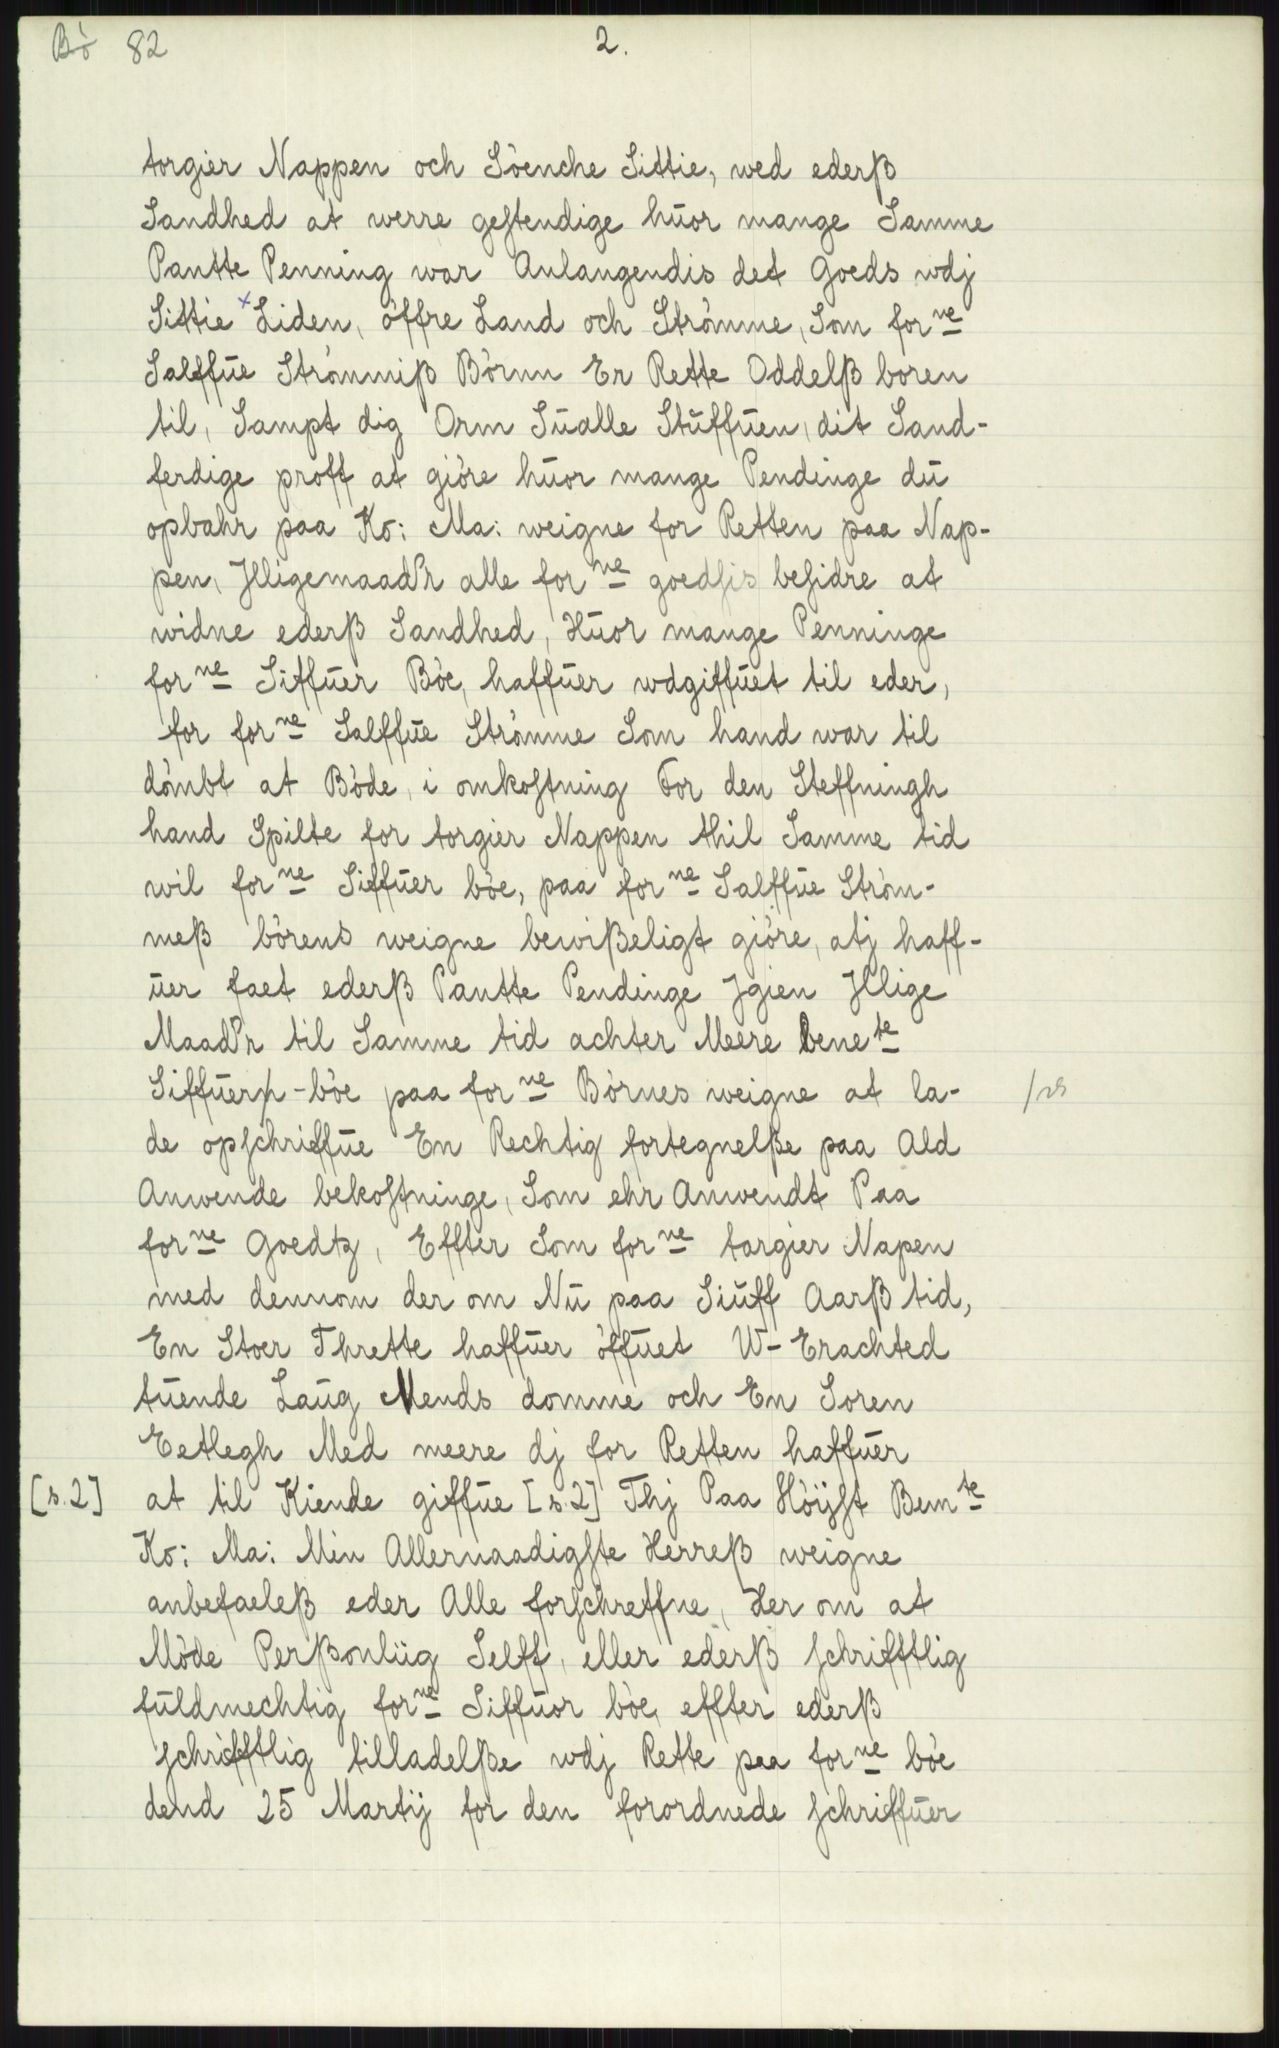 Bö 82
2.
torgier Nappen och Söenche Sittie, wed ederß
Sandhed at werre gestendige huor mange Samme
Pantte Penning war Anlangendis det Goeds wdj
Sittie x Liden, öffre Land och Strömme, Som forne
Salffue Strömmiß Börnn Er Rette Oddelß boren
til, Sampt dig Orm Sualle Stuffuen, dit Sand-
ferdige proff at giöre huor mange Pendinge du
opbahr paa Ko: Ma: weigne for Retten paa Nap-
pen, Jlligemaad'r alle forne goedsis besidre at
widne ederß Sandhed, Huor mange Penninge
forne Siffuer Böe, haffuer wdgiffuet til eder,
for forne Salffue Strömme Som hand war til
dömbt at Böde, i omkostning For den Steffningh
hand Spilte for torgier Nappen thil Samme tid
wil forne Siffuer böe, paa forne Salffue Ström-
meß börens weigne bewißeligt giöre, atj haff-
uer faet ederß Pantte Pendinge Jgien Jllige
Maad'r til Samme tid achter Meere benete
Siffuerp-böe paa forne Börnes weigne at la-
de opschriffue En Rechtig fortegnelße paa Ald
Anwende bekostninge, Som ehr Anwendt Paa
forne Goedtz, Effter Som forne torgier Napen
med dennom der om Nu paa Siuff Aarß tid,
En Stoer Thrette haffuer öffuet W-Erachted
tuende Laug Mends domme och En Soren
Eetlegh Med meere dj for Retten haffuer
[s.2] at til Kiende giffue [s.2] Thj Paa Höijst Bemte
Ko: Ma: Min Allernaadigste Herreß weigne
anbefaeleß eder Alle forschreffne, Her om at
Möde Perßonliig Selff, eller ederß schrifftlig
fuldmechtig forne Siffuor böe, effter ederß
schrifftlig tilladelße wdj Rette paa forne böe
dend 25 Martij for den forordnede schriffuer